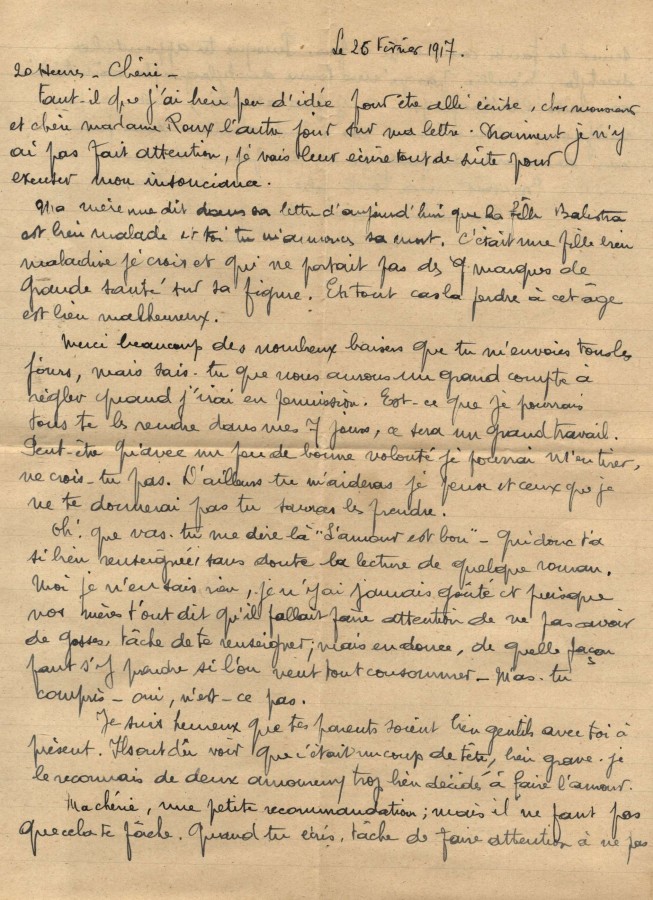 Le 26 Février 1917.
20 Heures - Chérie -
Faut-il que j'ai bien peu d'idée pour être allé écrire, cher monsieur
et chère madame Roux l'autre jour sur ma lettre. Vraiment je n'y
ai pas fait attention, je vais leur écrire tout de suite pour
excuser mon insouciance.
Ma mère me dit dans sa lettre d'aujourd'hui que la fille Balestra
est bien malade et toi tu m'annonces sa mort. C'était une fille bien
maladive je crois et qui ne portait pas des marques de
grande santé sur sa figure. En tout cas la perdre à cet âge
est bien malheureux.
Merci beaucoup des nombreux baisers que tu m'envoies tous les
jours, mais sais-tu que nous aurons un grand compte à
régler quand j'irai en permission. Est-ce que je pourrais
tous te les rendre dans mes 7 jours, ce sera un grand travail.
Peut-être qu'avec un peu de bonne volonté je pourrai m'en tirer,
ne crois-tu pas. D'ailleurs tu m'aideras je pense et ceux que je
ne te donnerai pas tu sauras les prendre.
Oh! que vas-tu me dire là "L'amour est bon" - Qui donc t'a
si bien renseignée; sans doute la lecture de quelque roman.
Moi je n'en sais rien, je n'y ai jamais goûté et puisque
nos mères t'ont dit qu'il fallait faire attention de ne pas avoir
de gosses, tâche de te renseigner; mais en douce, de quelle façon
faut s'y prendre si l'on veut tout consommer - M'as-tu
compris - oui, n'est-ce pas.
Je suis heureux que tes parents soient bien gentils avec toi à
présent. Ils ont dû voir que c'était un coup de tête, bien grave. je
le reconnais de deux amoureux trop bien décidés à faire l'amour.
Ma chérie, une petite recommandation; mais il ne faut pas
que cela te fâche. Quand tu écris, tâche de faire attention à ne pas